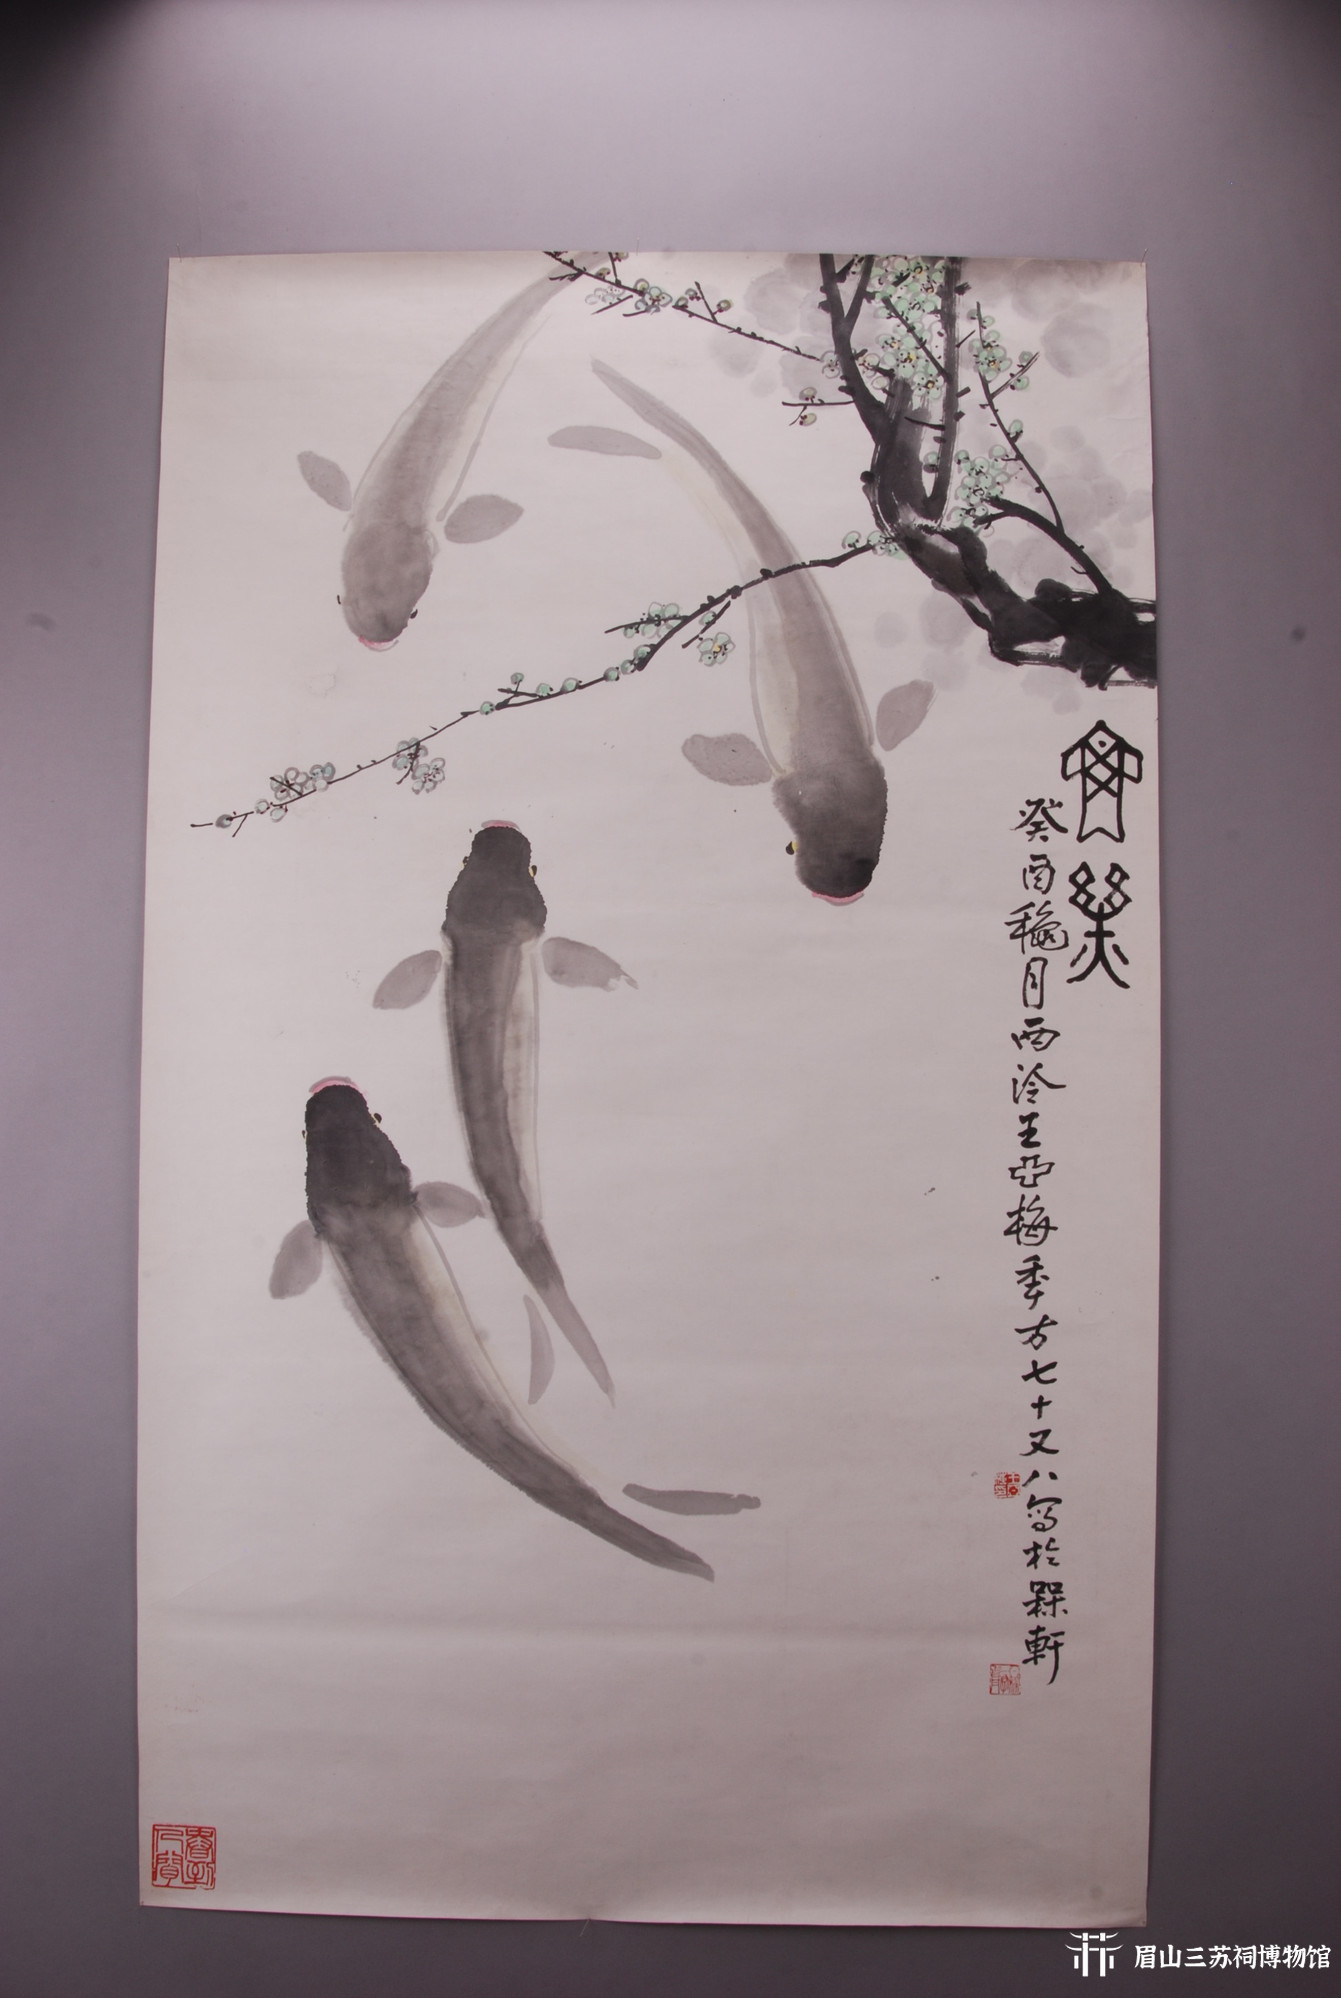 魚樂
癸酉穐月西泠王亞梅季方七十又八寫於槑軒
春到人間
眉山三苏祠博物馆